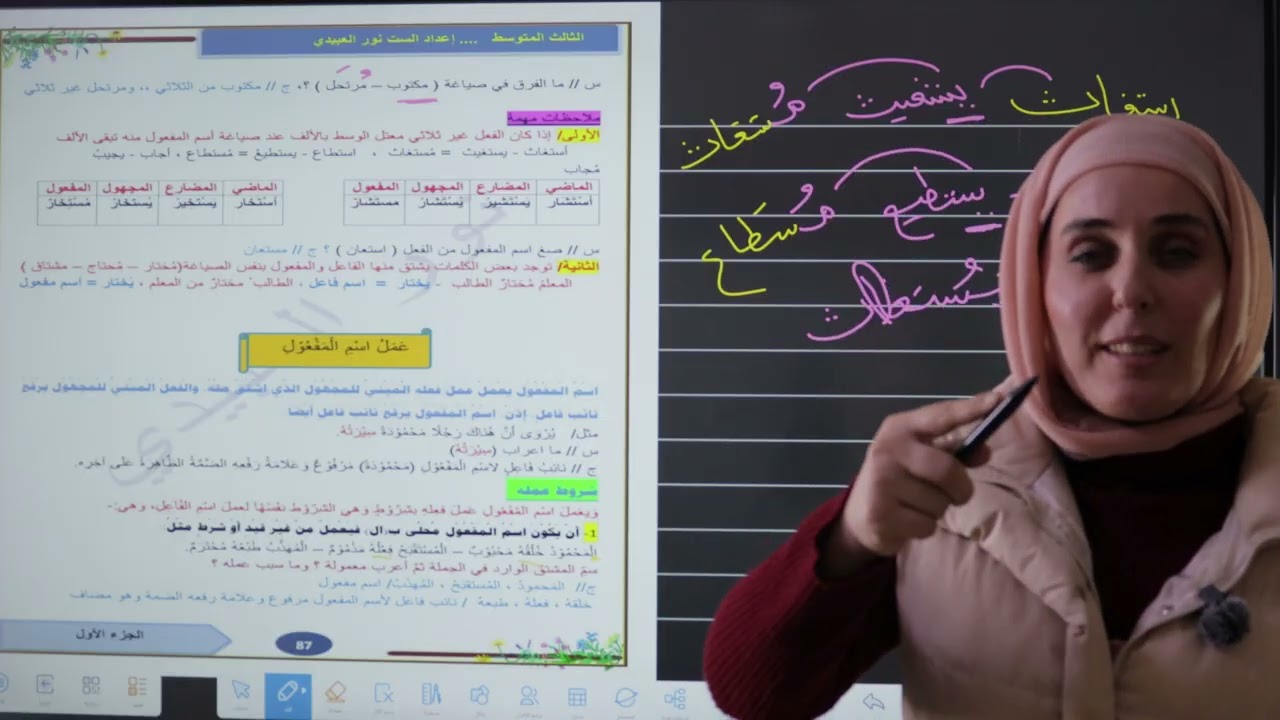 الثالث المتوسط .... إعداد الست نور العبيدي
س // ما الفرق في صياغة ( مكتوب – مُرتَحل ) ؟، ج // مكتوب من الثلاثي ،، ومرتحل غير ثلاثي
ملاحظات مهمة
الأولى/ إذا كان الفعل غير ثلاثي معتل الوسط بالألف عند صياغة أسم المفعول منه تبقى الألف
أستغاث - يستغيث = مُستغاث ، استطاع - يستطيع = مُستطاع ، أجاب - يجيب
مُجاب
الماضي المضارع المجهول المفعول
أستشار يَسْتشير يُسْتشار مستشار
الماضي المضارع المجهول المفعول
أستخار يَسْتخير يُستخار مُستخار
س // صغ اسم المفعول من الفعل ( استعان ) ؟ ج // مستعان
الثانية/ توجد بعض الكلمات يشتق منها الفاعل والمفعول بنفس الصياغة(مُختار – مُحتاج – مشتاق )
المعلمُ مُختارٌ الطالب - يَختار = اسم فاعل ، الطالب مختارٌ من المعلم ، يُختار = اسم مفعول
عَمَلُ اسْمِ الْمَفْعُوْلِ
اسم المفعول يعمل عمل فعله المبني للمجهول الذي اشتق منه والفعل المبني للمجهول يرفع
نائب فاعل إذن اسم المفعول يرفع نائب فاعل أيضا
مثل/ يُرْوَى أنَّ هُناكَ رَجُلًا مَحْمُوْدَةً سِيْرَتُهُ.
س // ما اعراب (سِيْرَتُهُ)
ج // نائبُ فاعِلٍ لاسْمِ الْمَفْعُوْلِ (مَحْمُوْدَةً) مَرْفُوْعٌ وعَلامَةُ رَفْعِهِ الضَّمَّةُ الظاهِرةُ عَلَى آخِره.
شروط عمله
ويَعْمَل اسْم المَفْعُول عَمَل فعله بشُرُوْطٍ وَهِي الشرُوْط نفْسُهَا لعمل اسْم الفَاعِل، وهي:-
1- أن يكون اسم المفعول محلى ب(ال) فيعمل من غير قيد أو شرط مثل
الْمَحْمُوْدُ خُلُقُهُ مَحْبُوْبٌ – الْمُسْتَقْبَحُ فِعْلُهُ مَذْمُوْمٌ – الْمُهَذَّبُ طَبْعُهُ مُحْتَرَمٌ.
سم المشتق الوارد في الجملة ثم أعرب معمولة ؟ وما سبب عمله ؟
ج// المحمودُ ، المُستقبَحُ ، المُهذبُ/ اسم مفعول
خلقه ، فعلهُ ، طبعهُ / نائب فاعل لأسم المفعول مرفوع وعلامة رفعه الضمة وهو مضاف
الجزء الأول
87
استغاث يستغيث مُستغاث
يستطيع مُستطاع